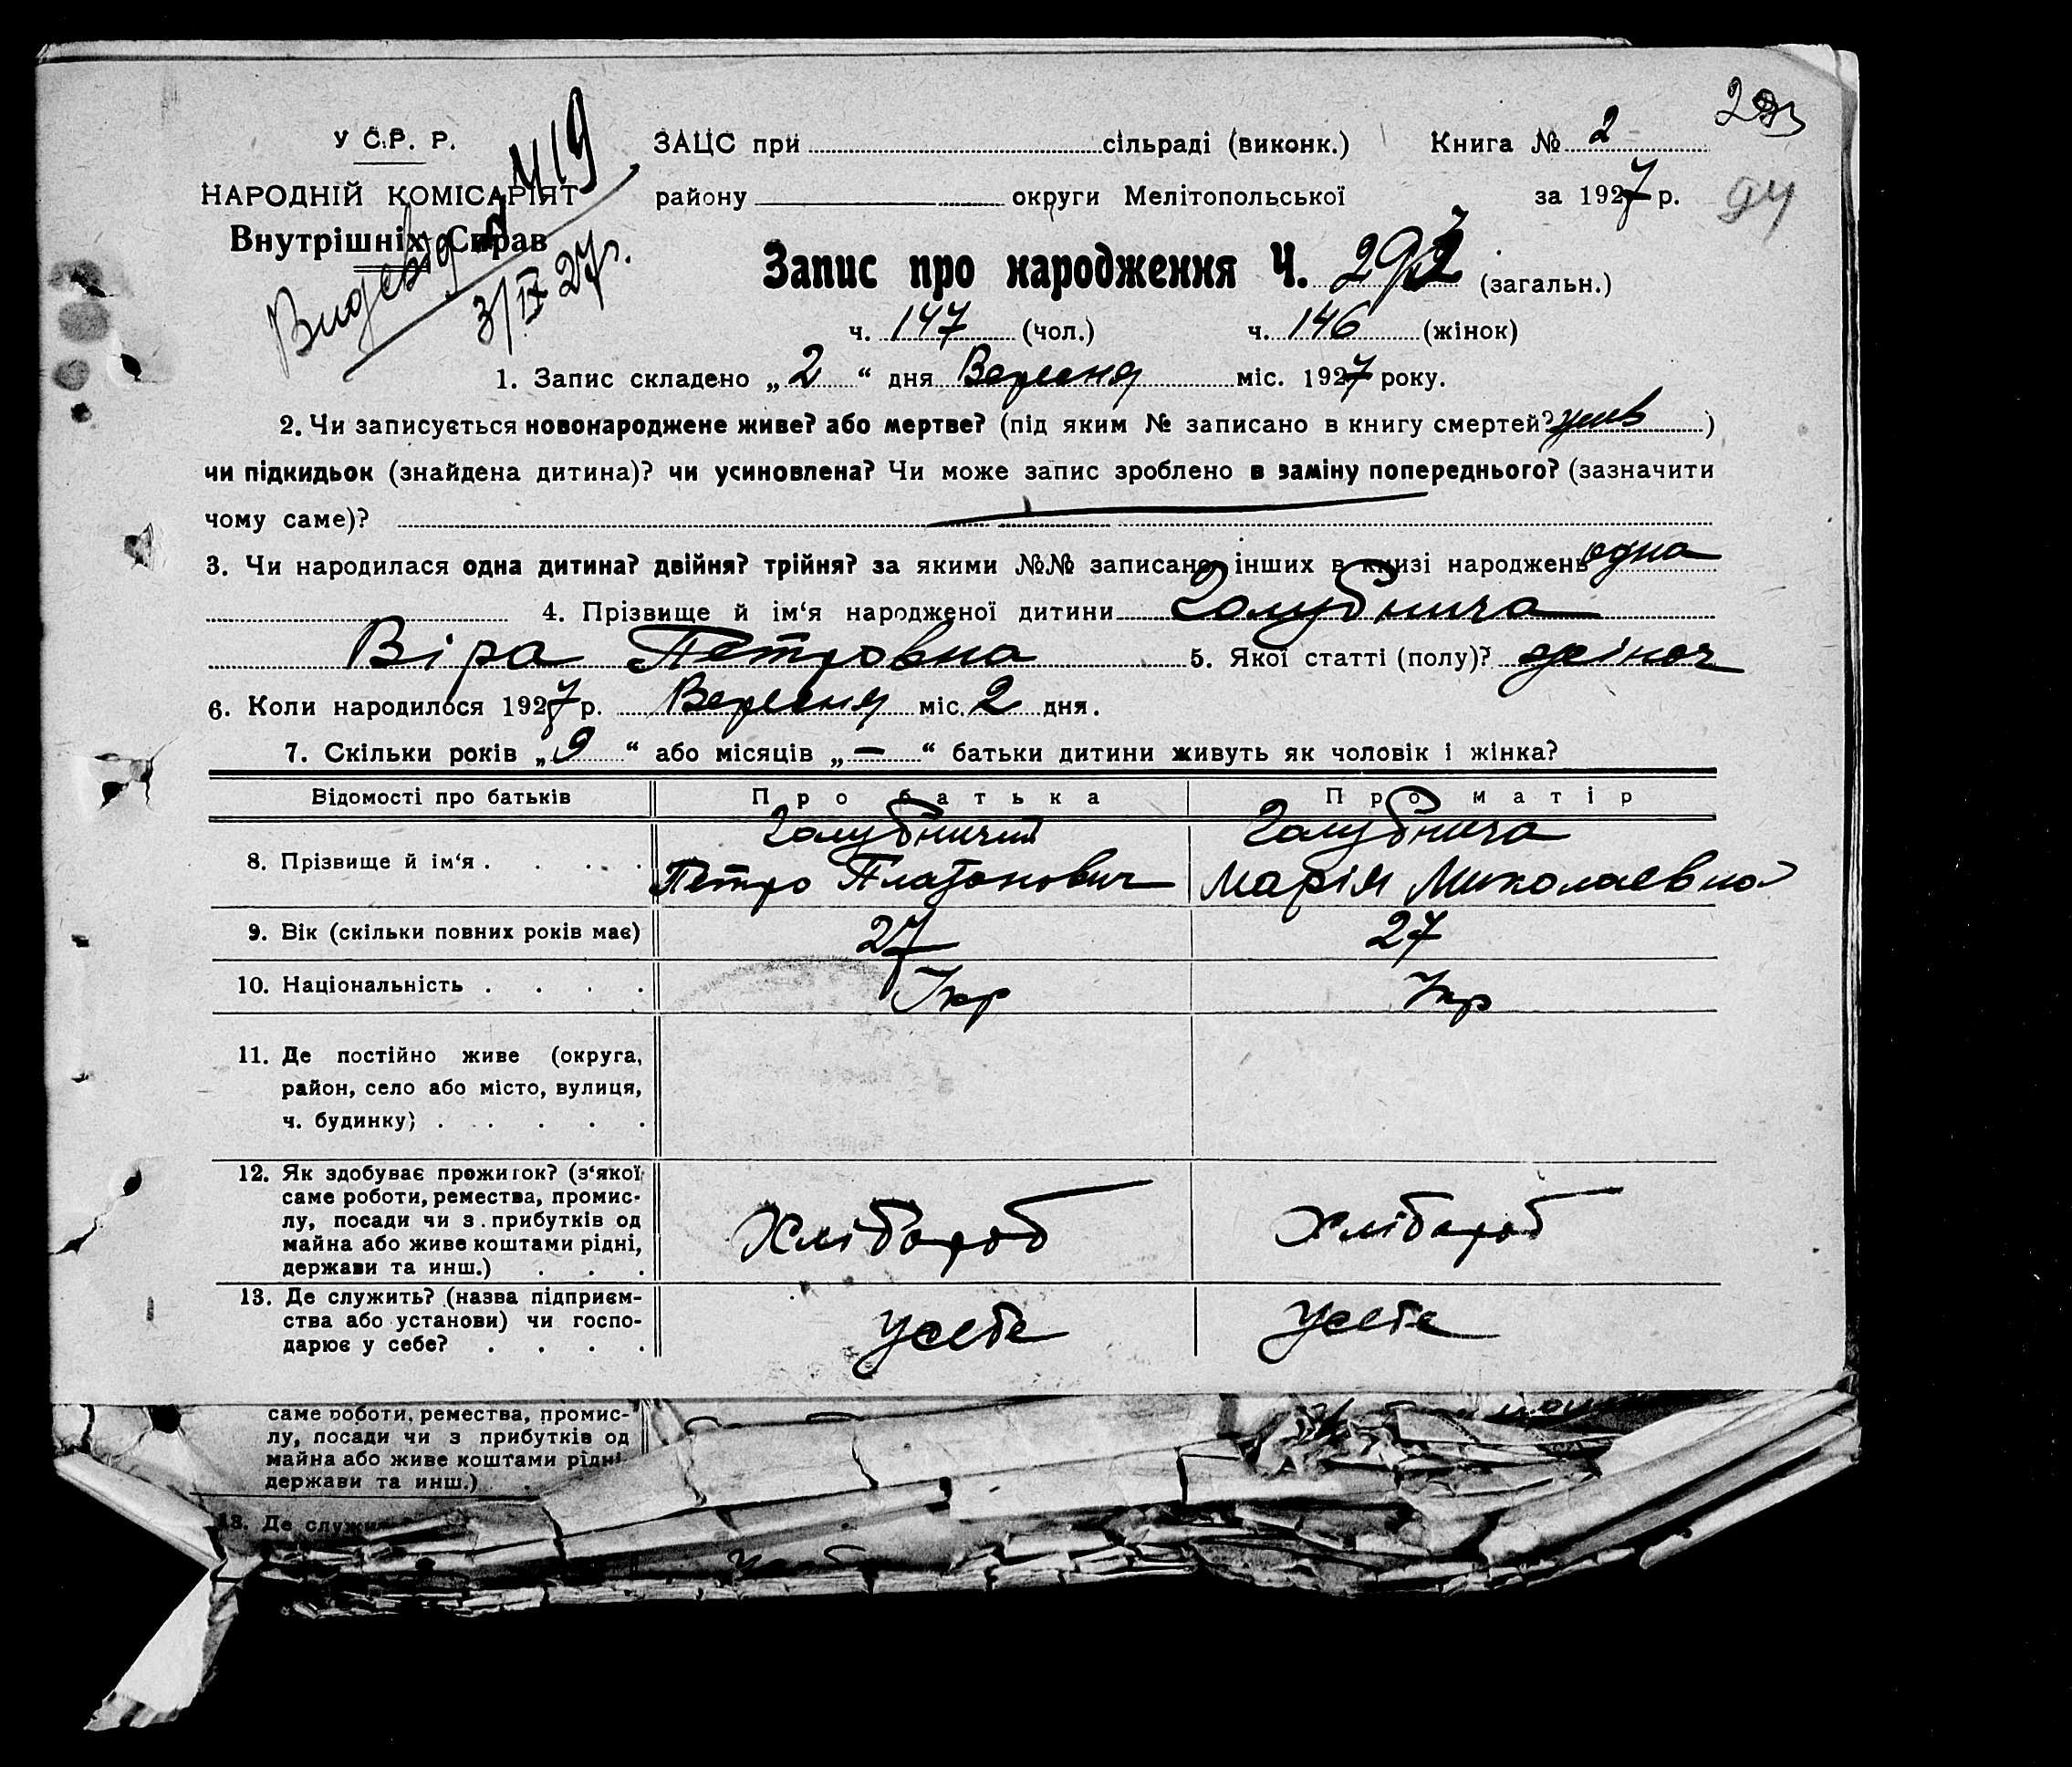 94
У С.Р. Р.
ЗАЦС при сільраді (виконк.) Книга № 2
НАРОДНІЙ КОМІСАРІЯТ
району округи Мелітопольської за 1927 р.
Внутрішніх Справ
3/IX 27 р.
Запис про народження Ч. (загальн.)
ч. 147 (чол.) ч. 146 (жінок)
1. Запис складено „ 2 “ дня Вересня міс. 1927 року.
2. Чи записується новонароджене живе? або мертве? (під яким № записано в книгу смертей? )
чи підкидьок (знайдена дитина)? чи усиновлена? Чи може запис зроблено в заміну попереднього? (зазначити
чому саме)?
3. Чи народилася одна дитина? двійня? трійня? за якими №№ записано інших в книзі народжень одна
4. Прізвище й ім‘я народженої дитини Голубнича
Віра Петровна 5. Якої статті (полу)? жіноч
6. Коли народилося 1927 р. Вересня міс. 2 дня.
7. Скільки років „ 9 “ або місяців „ — “ батьки дитини живуть як чоловік і жінка?
Відомості про батьків Про батька Про матір
Голубничий Голубнича
8. Прізвище й ім‘я . . . . .
Петро Платонович Марія Миколаевна
9. Вік (скільки повних років має) 27 27
10. Національність . . . . Укр Укр
11. Де постійно живе (округа,
район, село або місто, вулиця,
ч. будинку) . . . . .
12. Як здобуває прожиток? (з‘якої
саме роботи, ремества, промис-
лу, посади чи з прибутків од
майна або живе коштами рідні,
держави та инш.) . . .
Хлібороб Хлібороб
13. Де служить? (назва підприєм-
ства або установи) чи госпо-
дарює у себе? . . . .
Усебе Усебе
саме роботи, ремества, промис-
лу, посади чи з прибутків од
майна або живе коштами рідні
держави та инш.)
13. Де служить